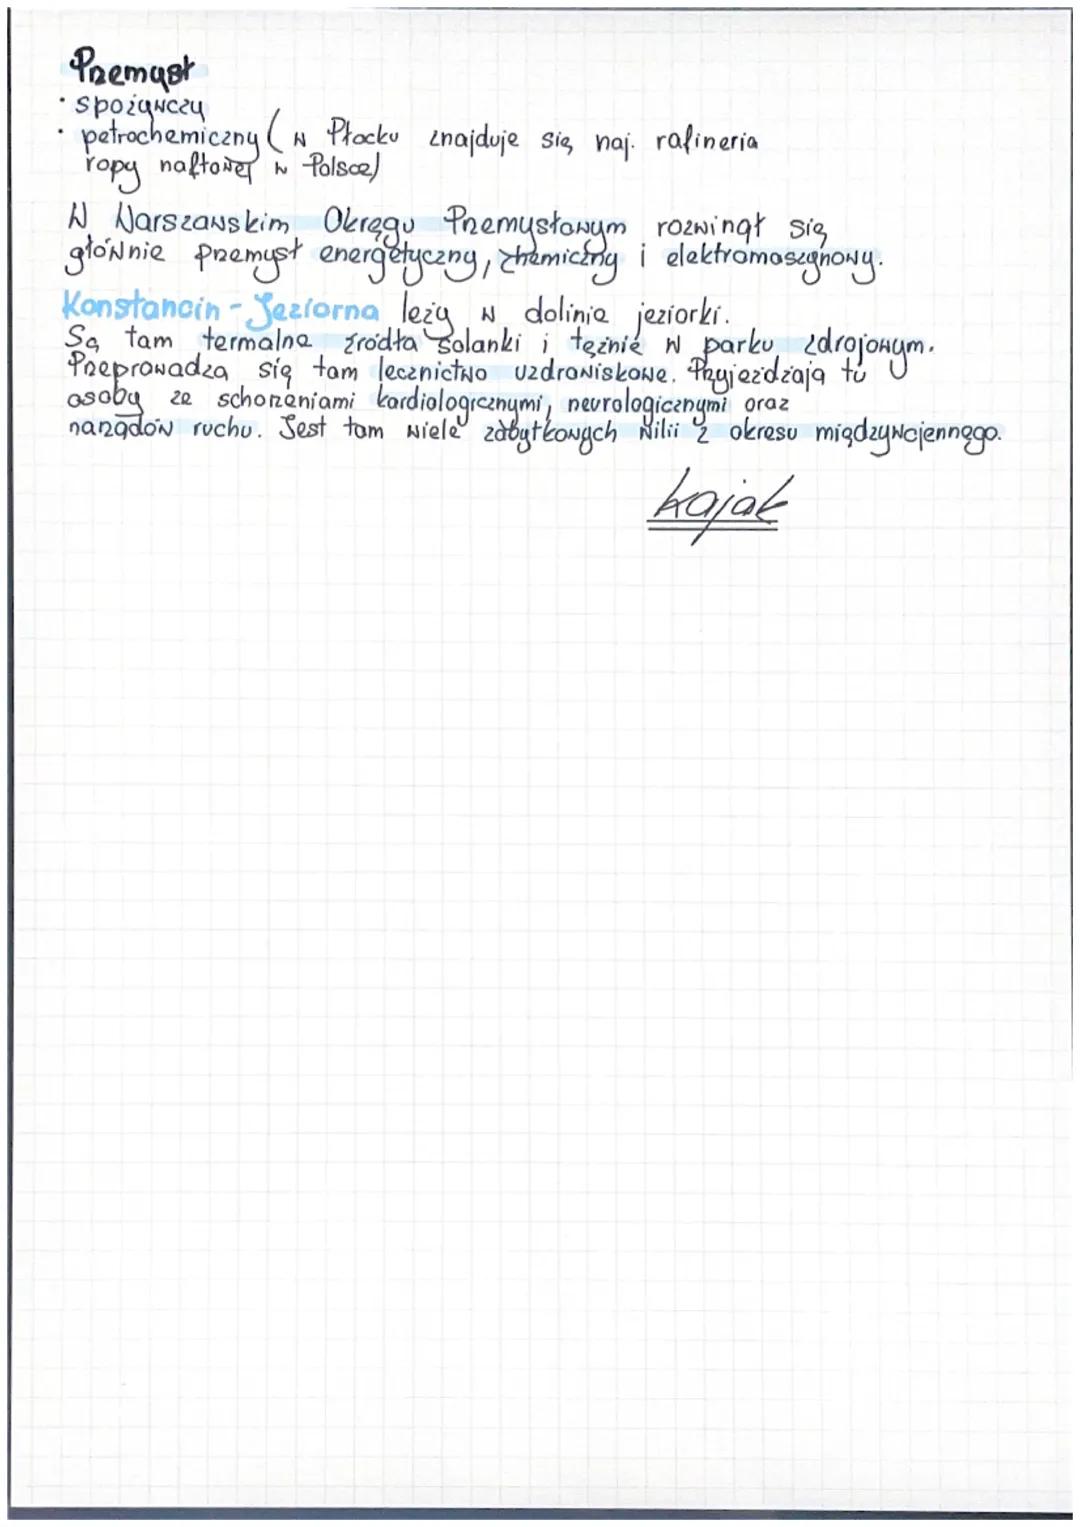 Przemysł
• spożywczy
• petrochemiczny (w Płocku znajduje się naj. rafineria
ropy naftowej w Polsce)
W Warszawskim Okręgu Przemysłowym rozwinął się
głównie przemysł energetyczny, chemiczny i elektromaszynowy.
Konstancin - Jeziorna leży w dolinie jeziorki.
Są tam termalne źródła solanki i tężnie w parku zdrojowym.
Przeprowadza się tam lecznictwo uzdrowiskowe. Przyjeżdżają tu
osoby ze schorzeniami kardiologicznymi, neurologicznymi oraz
narządów ruchu. Jest tam wiele zabytkowych willi z okresu międzywojennego.
kajak